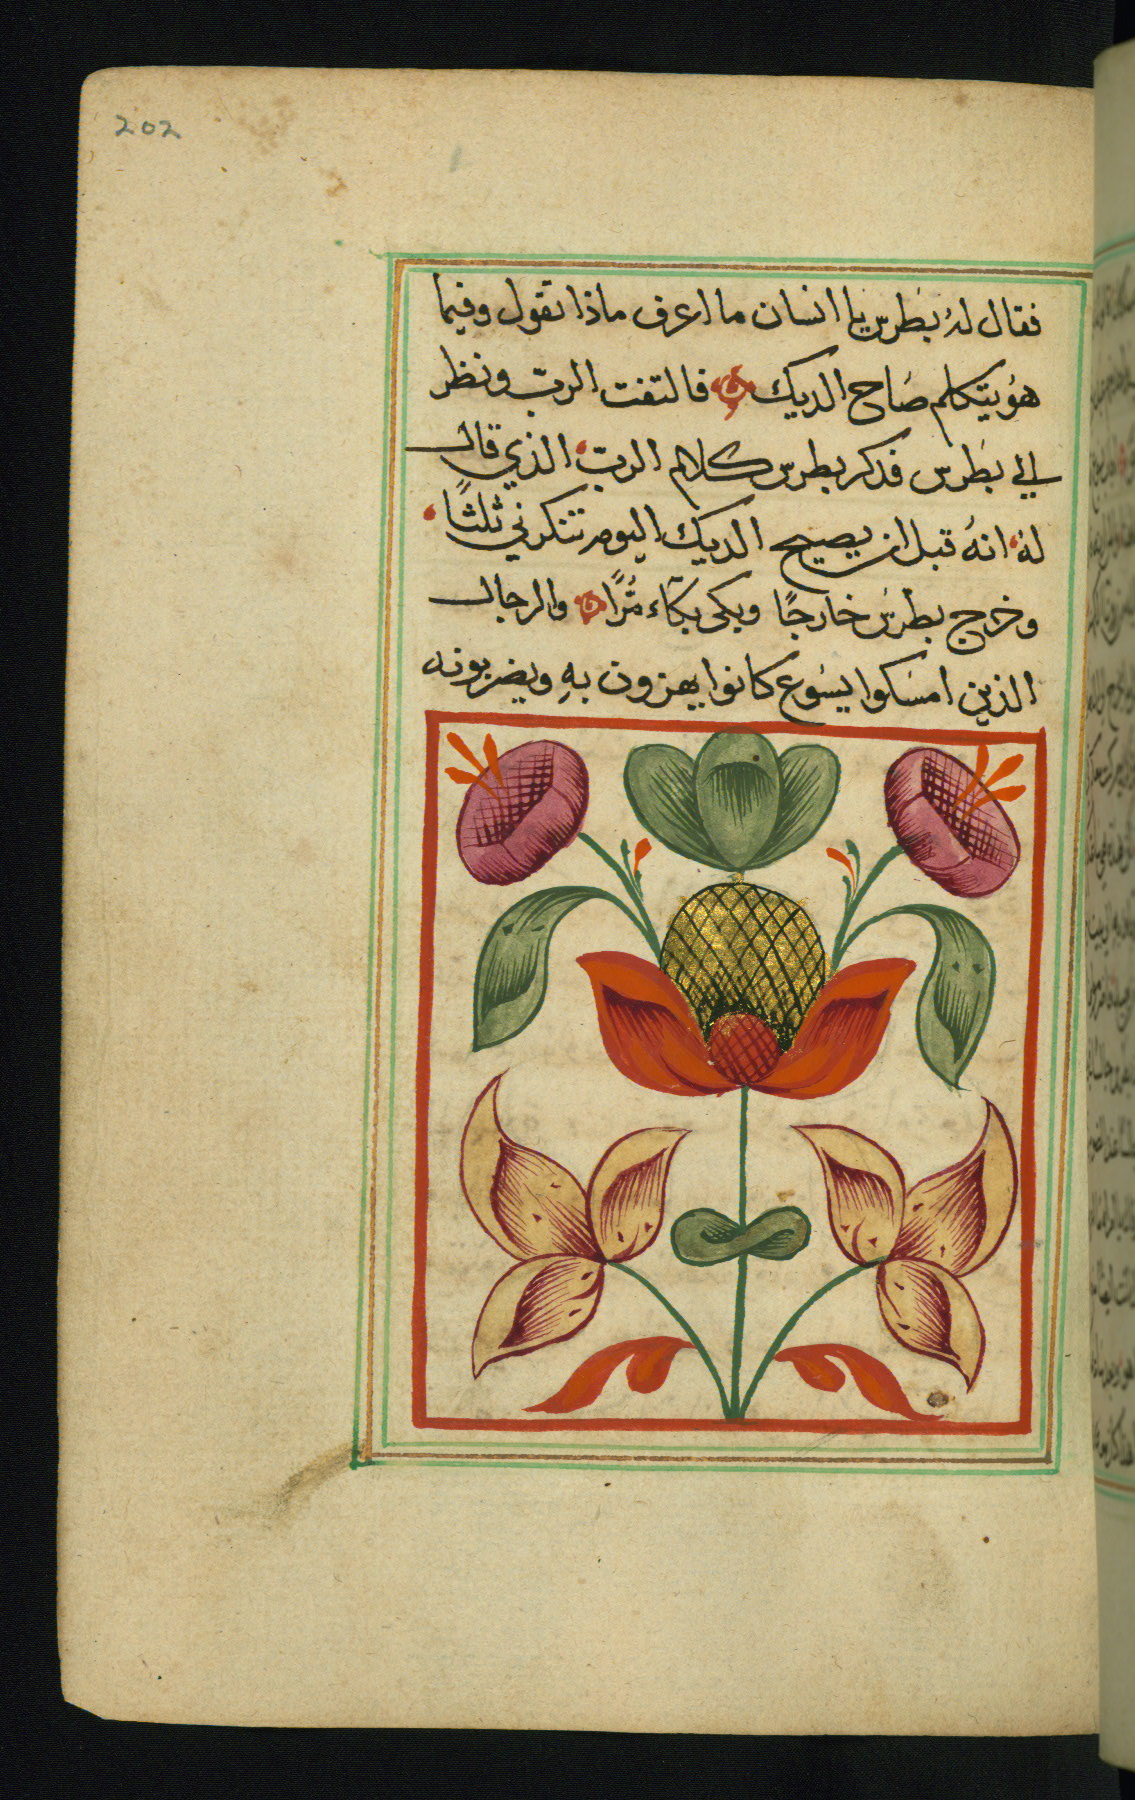 202
فقال لهُ بطرس يا انسان ما اعرف ماذا تقول وفيما
هو يتكلم صَاح الديك فالتفت الربّ ونظر
الي بطرس فذكر بطرس كلام الربّ الذي قال
لهُ انهُ قبل ان يصيح الديك اليوم تنكرني ثلثًا
وخرج بطرس خارجًا وبكى بكآء مُرًّا والرجال
الذين امسَكوا يسُوع كانوا يهزون بهِ ويضربونه